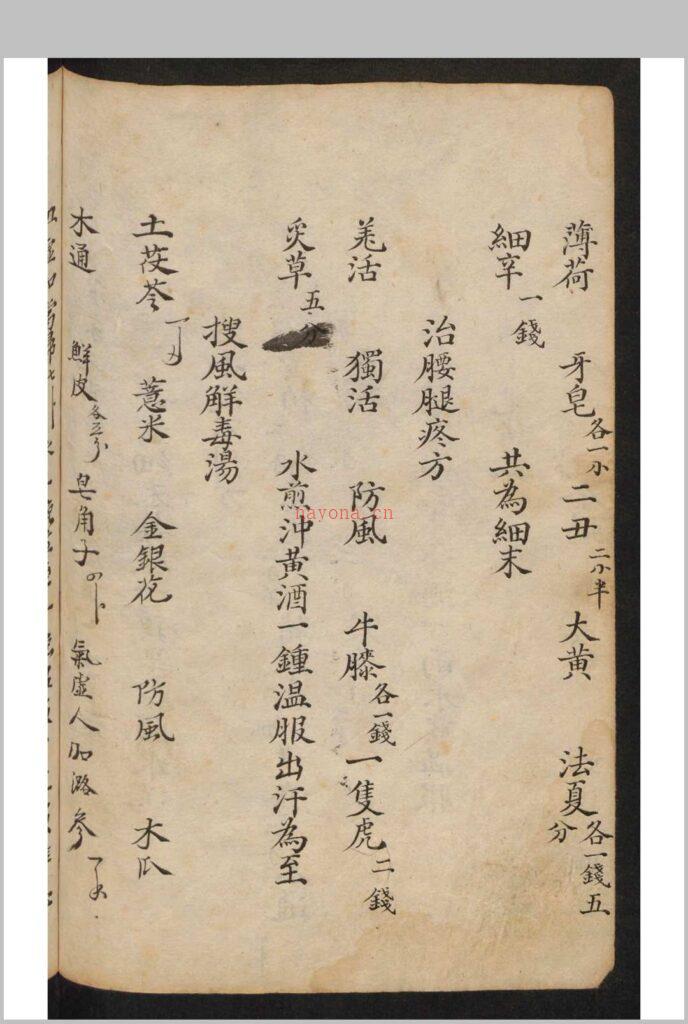 薄荷 牙皂各一小 二丑二小半 大黃 法夏各一錢五分
細辛一錢 共為細末
治腰腿疼方
羌活 獨活 防風 牛膝各一錢 一隻虎二錢
炙草五分 水煎沖黃酒一鍾温服出汗為至
搜風解毒湯
土茯苓 薏米 金銀花 防風 木瓜
木通 鮮皮各五分 皂角子 氣虛人加潞參
nayona.cn